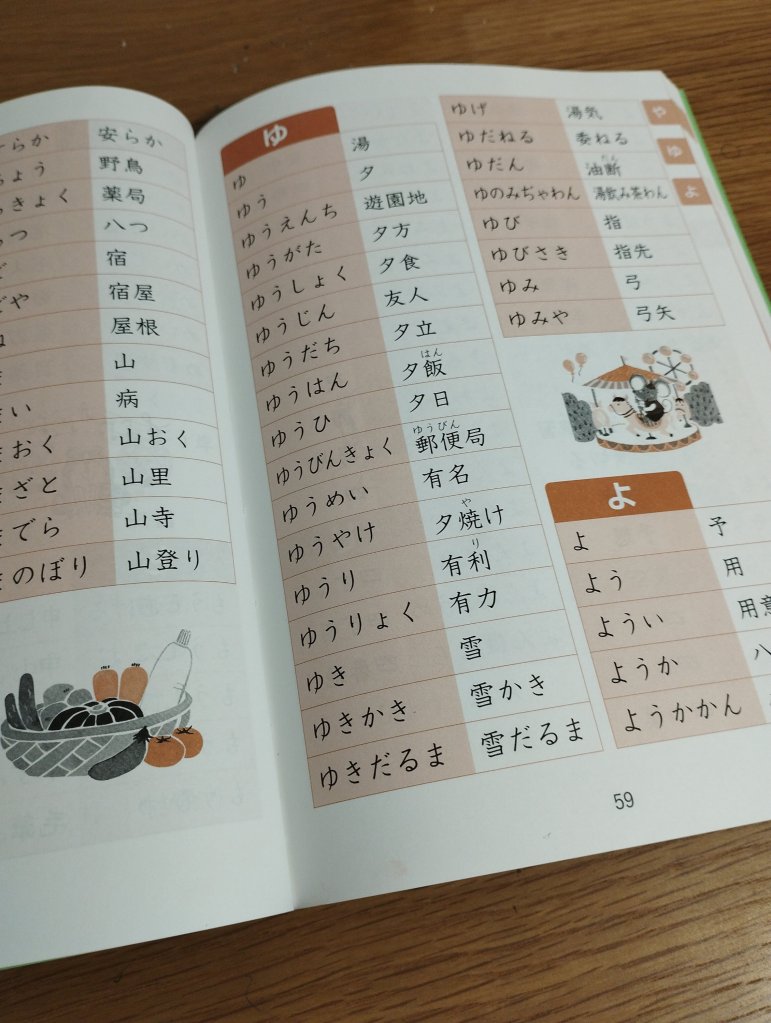 らか 安らか
ょう 野鳥
きょく 薬局
つ 八つ
宿
や 宿屋
屋根
山
い 病
おく 山おく
ざと 山里
でら 山寺
のぼり 山登り
ゆ
ゆ 湯
ゆう 夕
ゆうえんち 遊園地
ゆうがた 夕方
ゆうしょく 夕食
ゆうじん 友人
ゆうだち 夕立
はん
ゆうはん 夕飯
ゆうひ 夕日
ゆうびん
ゆうびんきょく 郵便局
ゆうめい 有名
や
ゆうやけ 夕焼け
り
ゆうり 有利
ゆうりょく 有力
ゆき 雪
ゆきかき 雪かき
ゆきだるま 雪だるま
ゆげ 湯気
ゆだねる 委ねる
だん
ゆだん 油断
ゆのみぢゃわん 湯飲み茶わん
ゆび 指
ゆびさき 指先
ゆみ 弓
ゆみや 弓矢
よ
よ 予
よう 用
ようい 用意
ようか 八
ようかかん
や
ゆ
よ
59